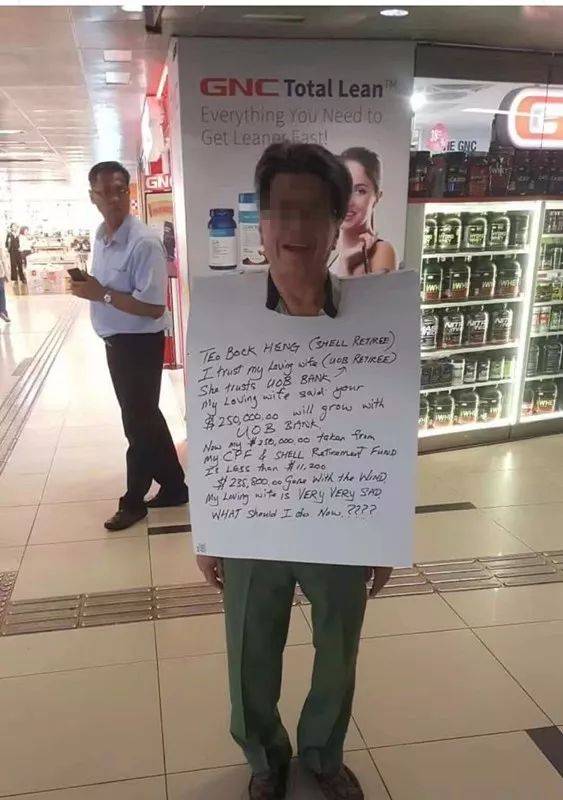 GNC Total Lean™
Everything You Need to
Get Leaner Fast!
GNC
THE GNC
TEO BOCK HENG (SHELL RETIREE)
I trust my Loving wife (UOB RETIREE)
She trusts UOB BANK
My Loving wife said your
$250,000.00 will grow with
UOB BANK
Now my $250,000.00 taken from
My CPF & SHELL Retirement FUND
Is Less than $11,200
$235,800.00 Gone With the WIND
My Loving wife is VERY VERY SAD
WHAT Should I do Now ????